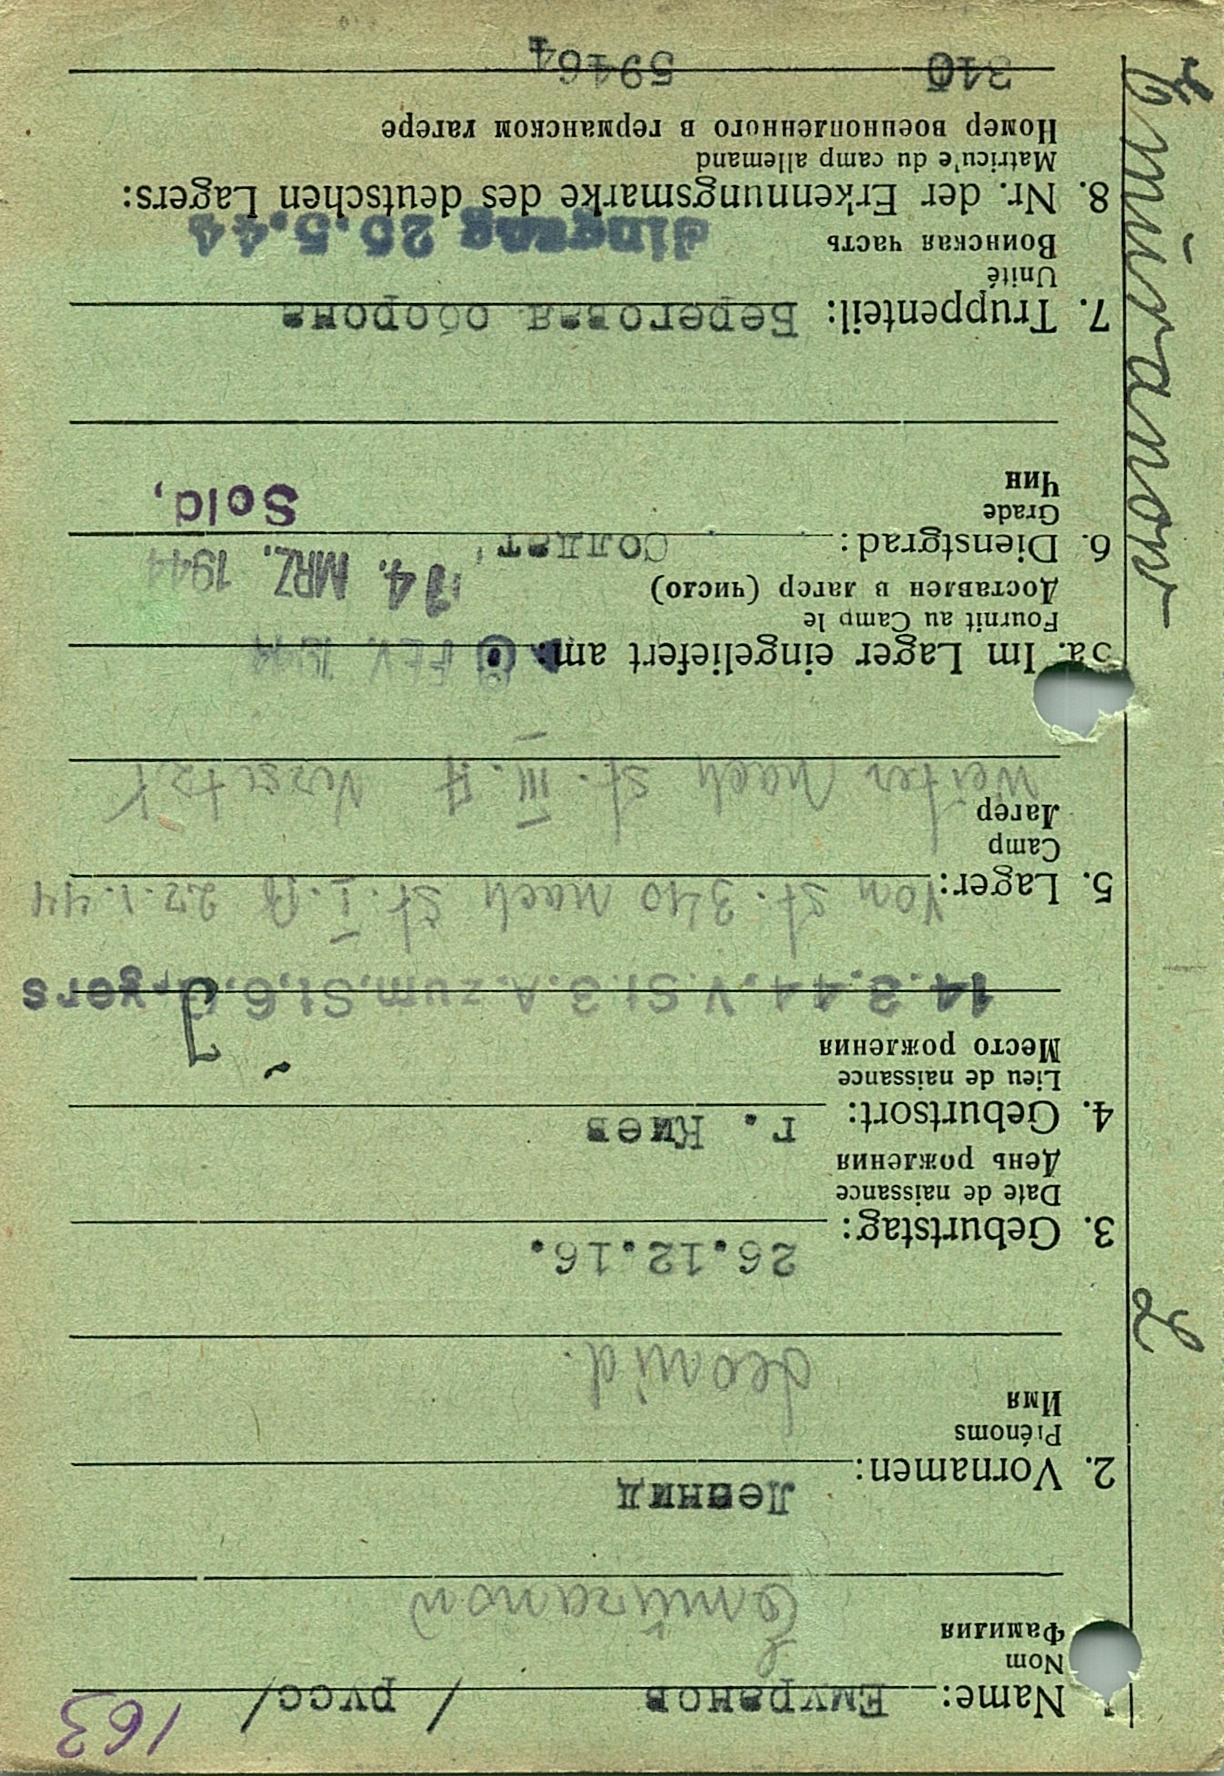 163
1. Name: Емуранов / русс/
Nom
Фамилия
Emüranow
2. Vornamen: Леонид
Prénoms
Имя
Leonid.
3. Geburtstag: 26.12.16.
Date de naissance
День рождения
4. Geburtsort: г. Киев
Lieu de naissance
Место рождения
14.3.44. V.St.3.A.zum.St.6.
5. Lager: Von St. 340 nach St. I. B 27.1.44
Camp
Лагер
Weiter nach St. III. A Versetzt
5a. Im Lager eingeliefert am: FEV. 1944
Fournit au Camp le
Доставлен в лагер (число)
14. MRZ. 1944
6. Dienstgrad: Солдат,
Grade
Чин
Sold,
7. Truppenteil: Береговая оборона
Unité
Воинская часть
Eingang 25.5.44
8. Nr. der Erkennungsmarke des deutschen Lagers:
Matricu'e du camp allemand
Номер военнопленного в германском лагере
340 59464
L Emüranow